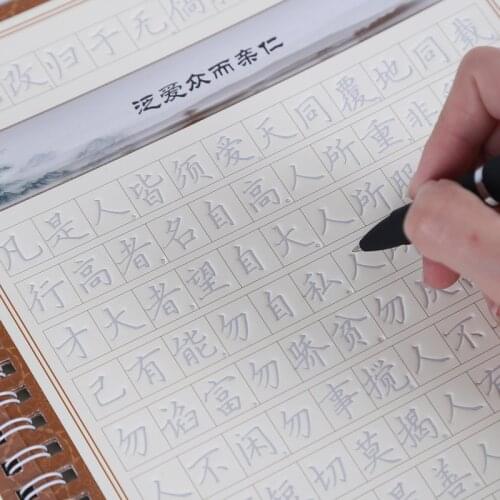 改归于无倘
泛爱众而亲仁
凡是人皆须爱天同覆地同载
行高者名自高人所重非
才大者望自大人所服
己有能勿自私人
勿谄富勿骄贫勿厌
人不闲勿事搅人不
短切莫揭人有
善